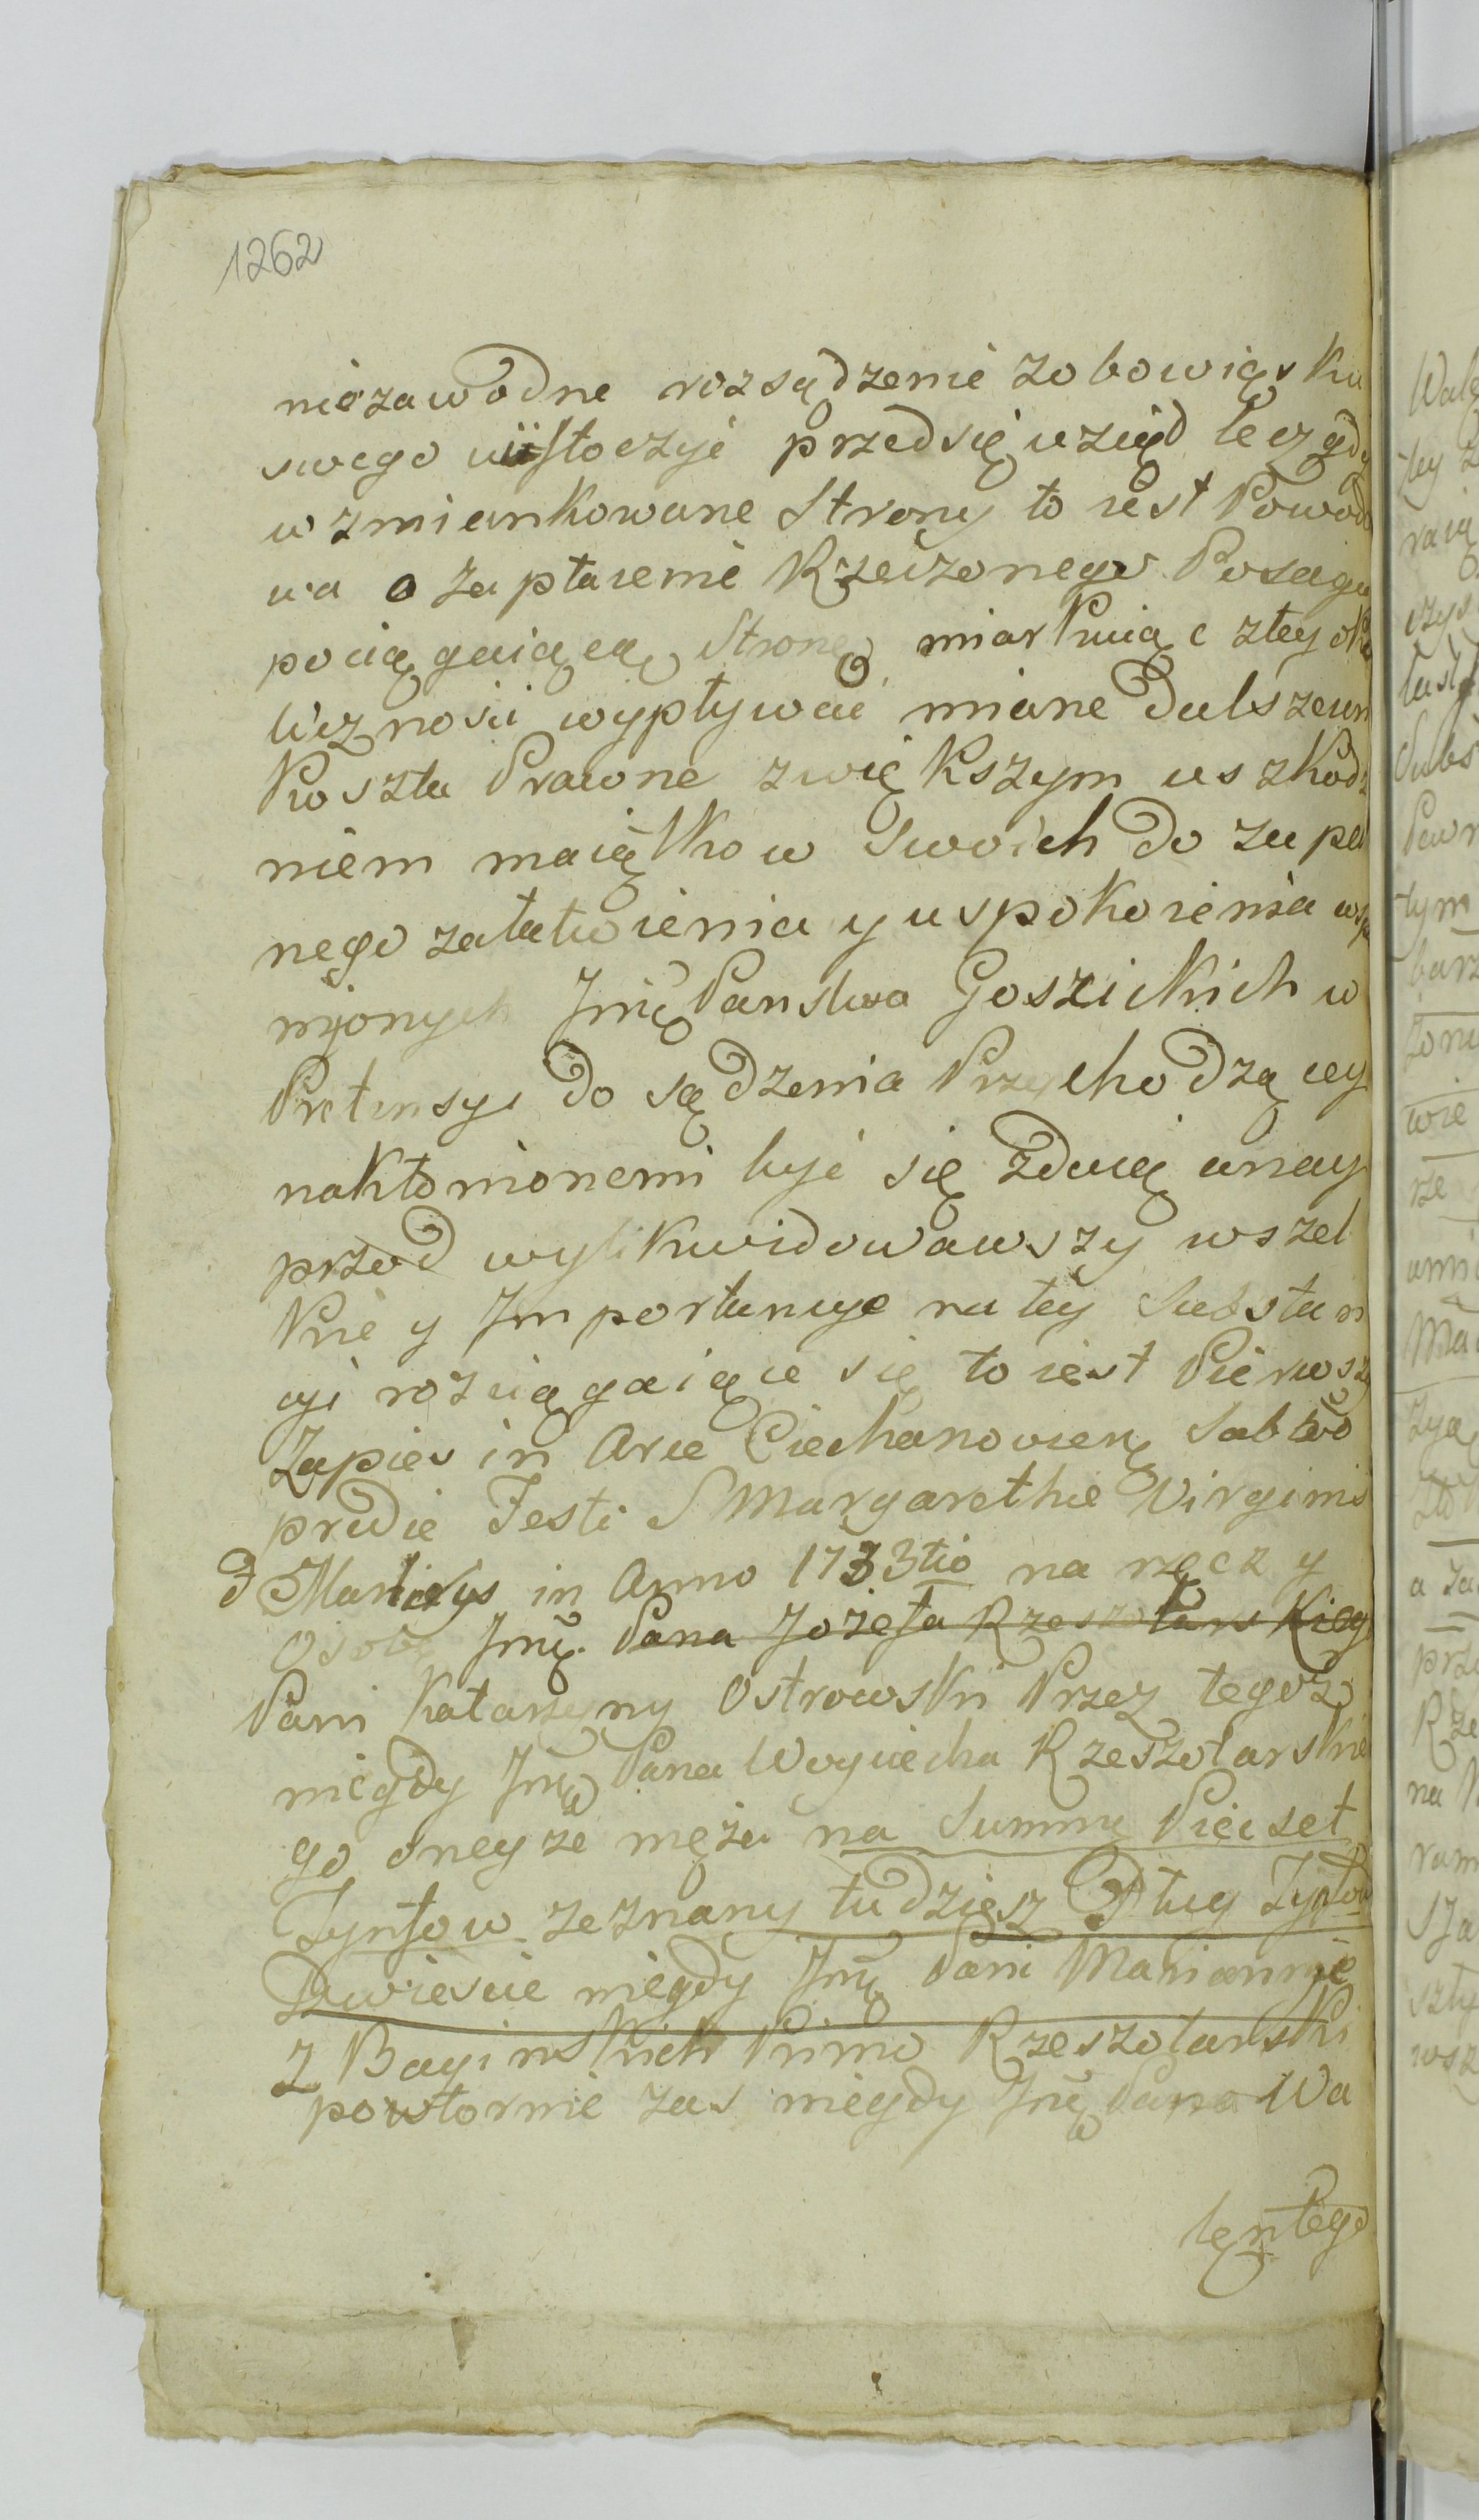 1262
niezawodne rozsądzenie zobowiązku
swego uiistoczyć przedsięwziął lecz gdy
wzmiankowane Strony to iest Powodo
wa o zapłacenie Rzeczonego Posagu
pociągaiącą Stronę miarkuiąc z tey oko
liczności wypływać miane dalsze
Koszta Prawne z większym uszkodz
niem maiątkow swoich do zupeł
nego załatwienia y uspokoienia wspo
mionych Jmę Panstwa Goszickich w
Pretensyi do sądzenia Przychodzącey
nakłonionemi być się zdaią a nay
przod wylikwidowawszy wszel
kie y Importunuye na tey Substan
cyi rozciągaiące się to iest Pierwszy
Zapis in Arce Ciechanovien Sabbõ
pridie Festi S Margarethæ Virginis
& Martiris in Anno 1733tio na rzecz y
Osobę Jmę Pana Jozefa Rzeszotarskieg
Pani Katarzyny Ostrowski Przez tegoż
niegdy Jmę Pana Woyciecha Rzeszotarskie
go oneyże męża na Summę Pięcset
Tynfow zeznany tudziesz Dług Tynfow
Dwiescie niegdy Jmę Pani Mariannie
Z Baginskich Primo Rzeszotarski
powtornie zas niegdy Jmę Pana Wa
lentego